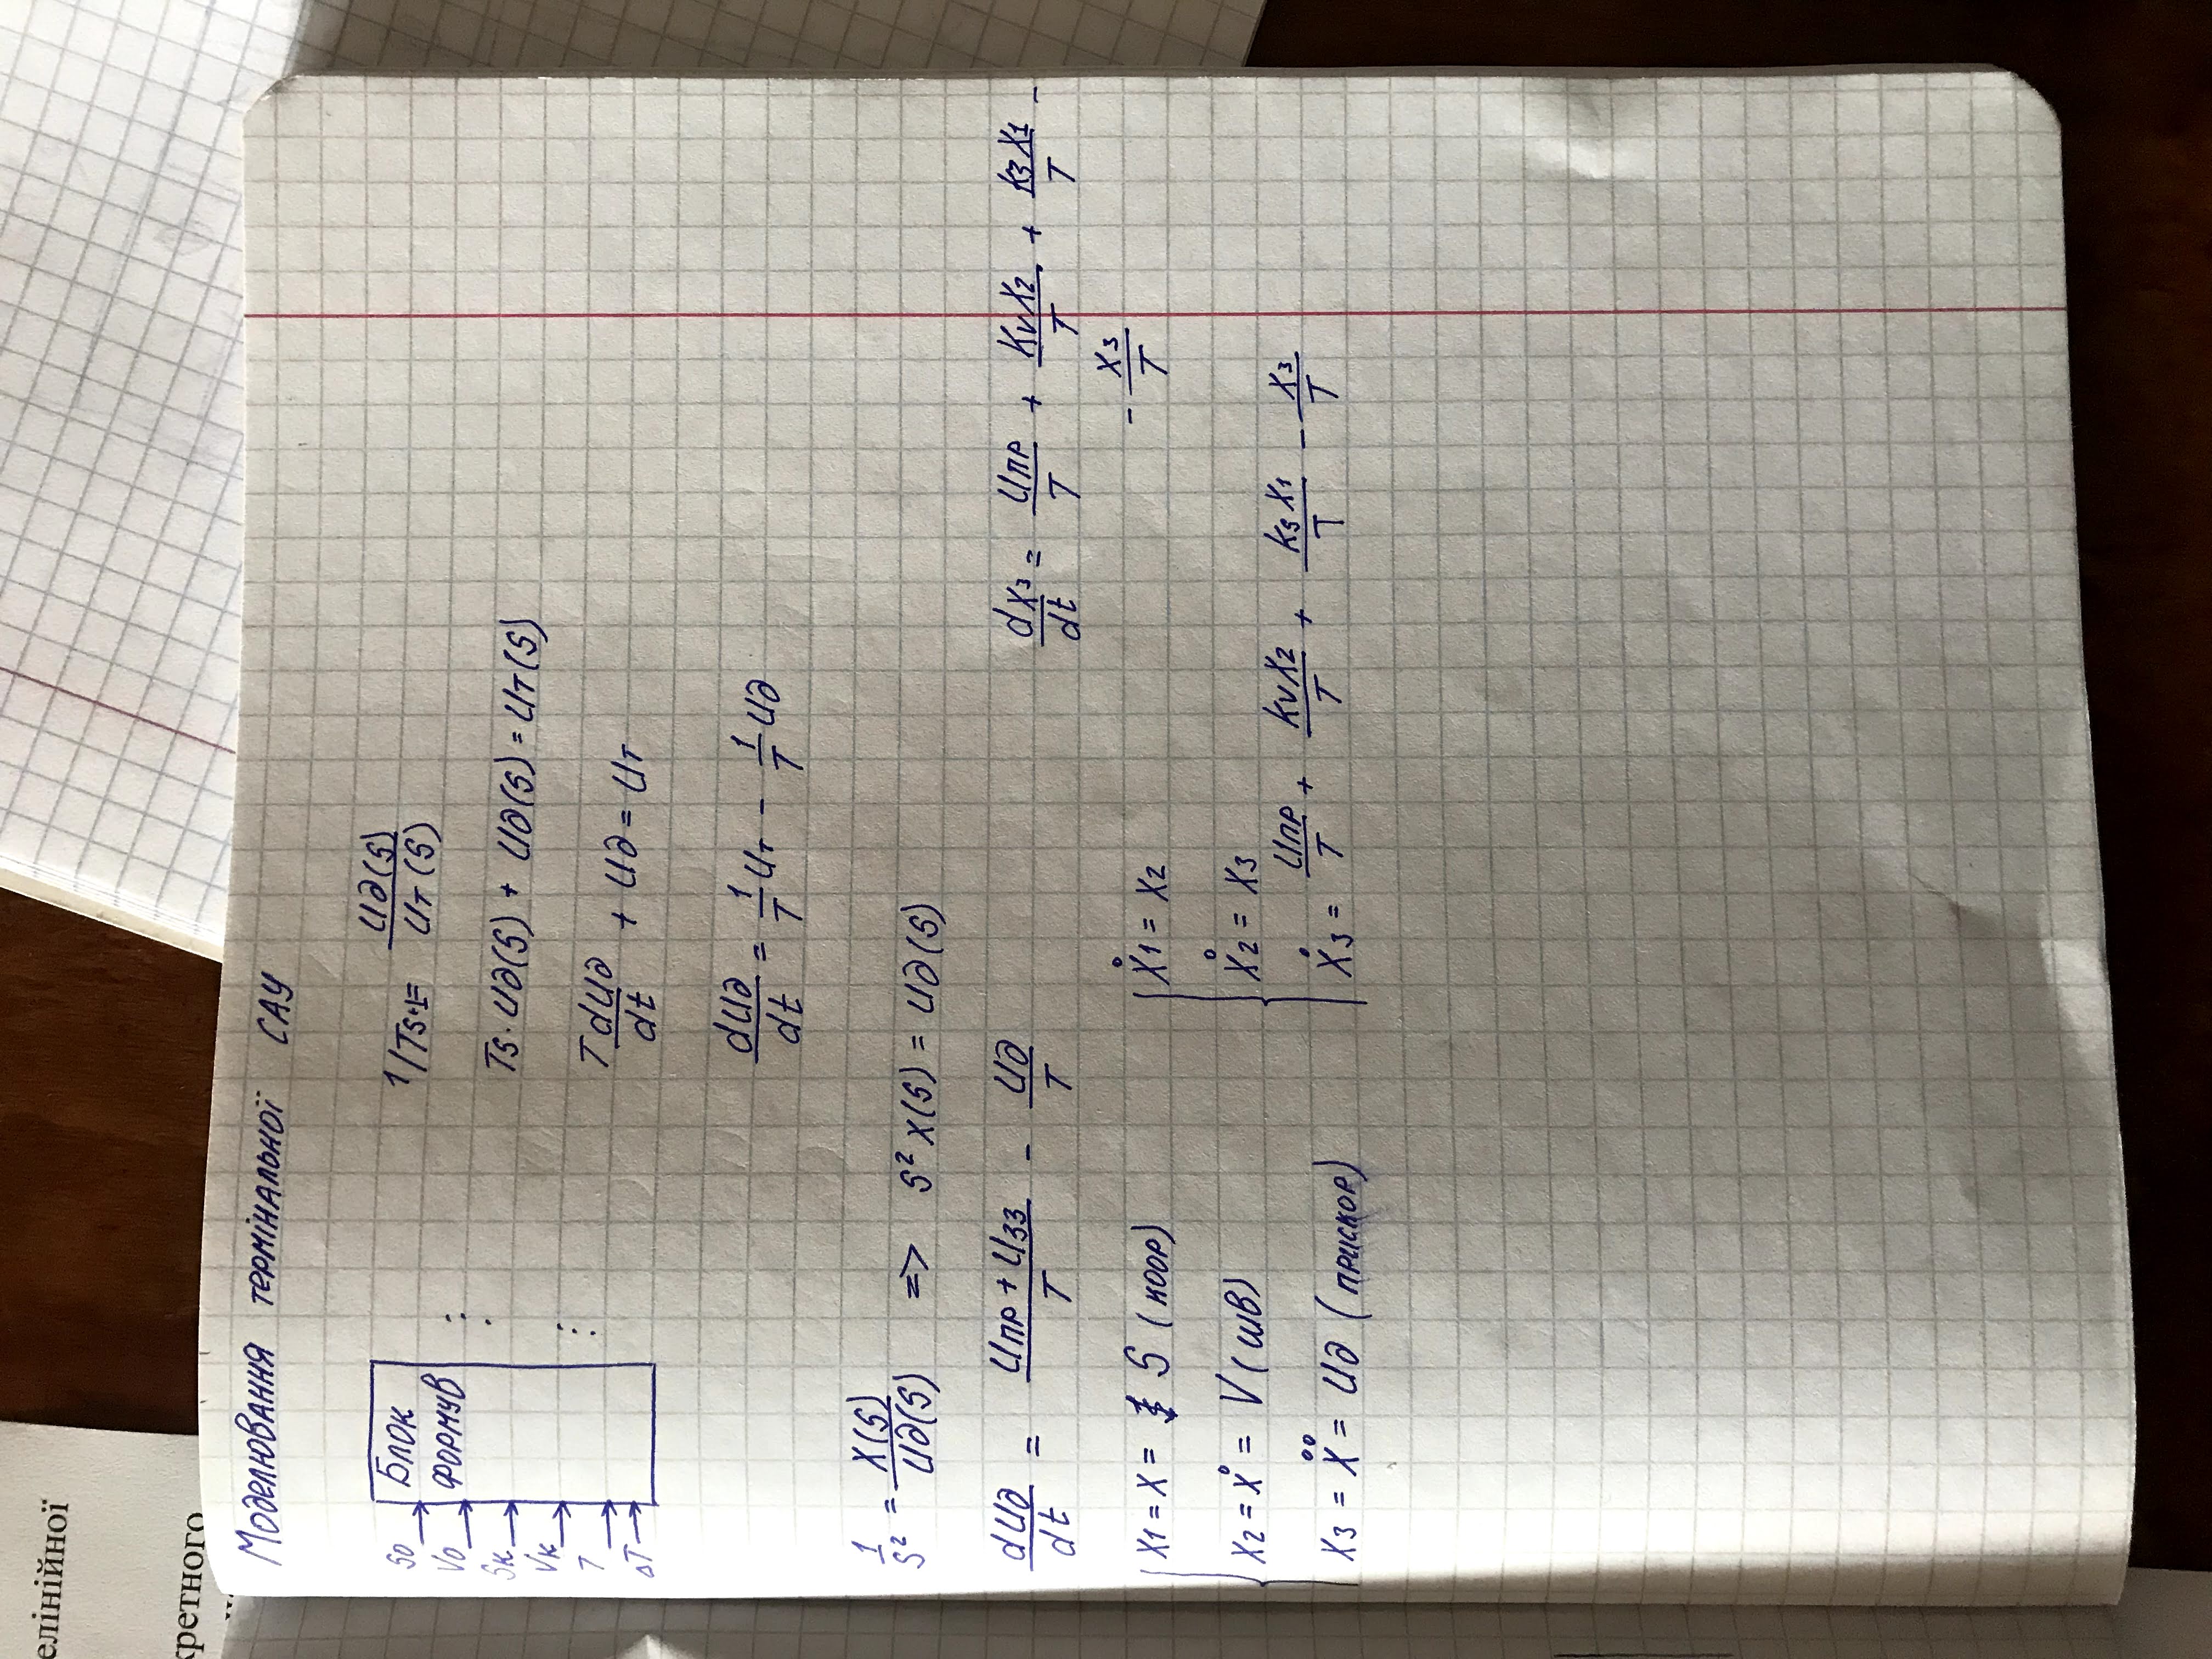 елінійної
кретного
Моделювання термінальної САУ
S0
V0
Sк
Vк
T
ΔT
Блок
формув
1/Ts+1= Uд(S)/Uт(S)
Ts·Uд(S) + Uд(S) = Uт(S)
T dUд/dt + Uд = Uт
dUд/dt = 1/T Uт - 1/T Uд
1/S² = X(S)/Uд(S) => S² X(S) = Uд(S)
dUд/dt = Uпр + Uзз/T - Uд/T
dX3/dt = Uпр/T + KvX2/T + k3X1/T -
- X3/T
X1 = X = S (коор)
X2 = Ẋ = V (шв)
X3 = Ẍ = Uд (прискор)
Ẋ1 = X2
Ẋ2 = X3
Ẋ3 = Uпр/T + KvX2/T + KsX1/T - X3/T